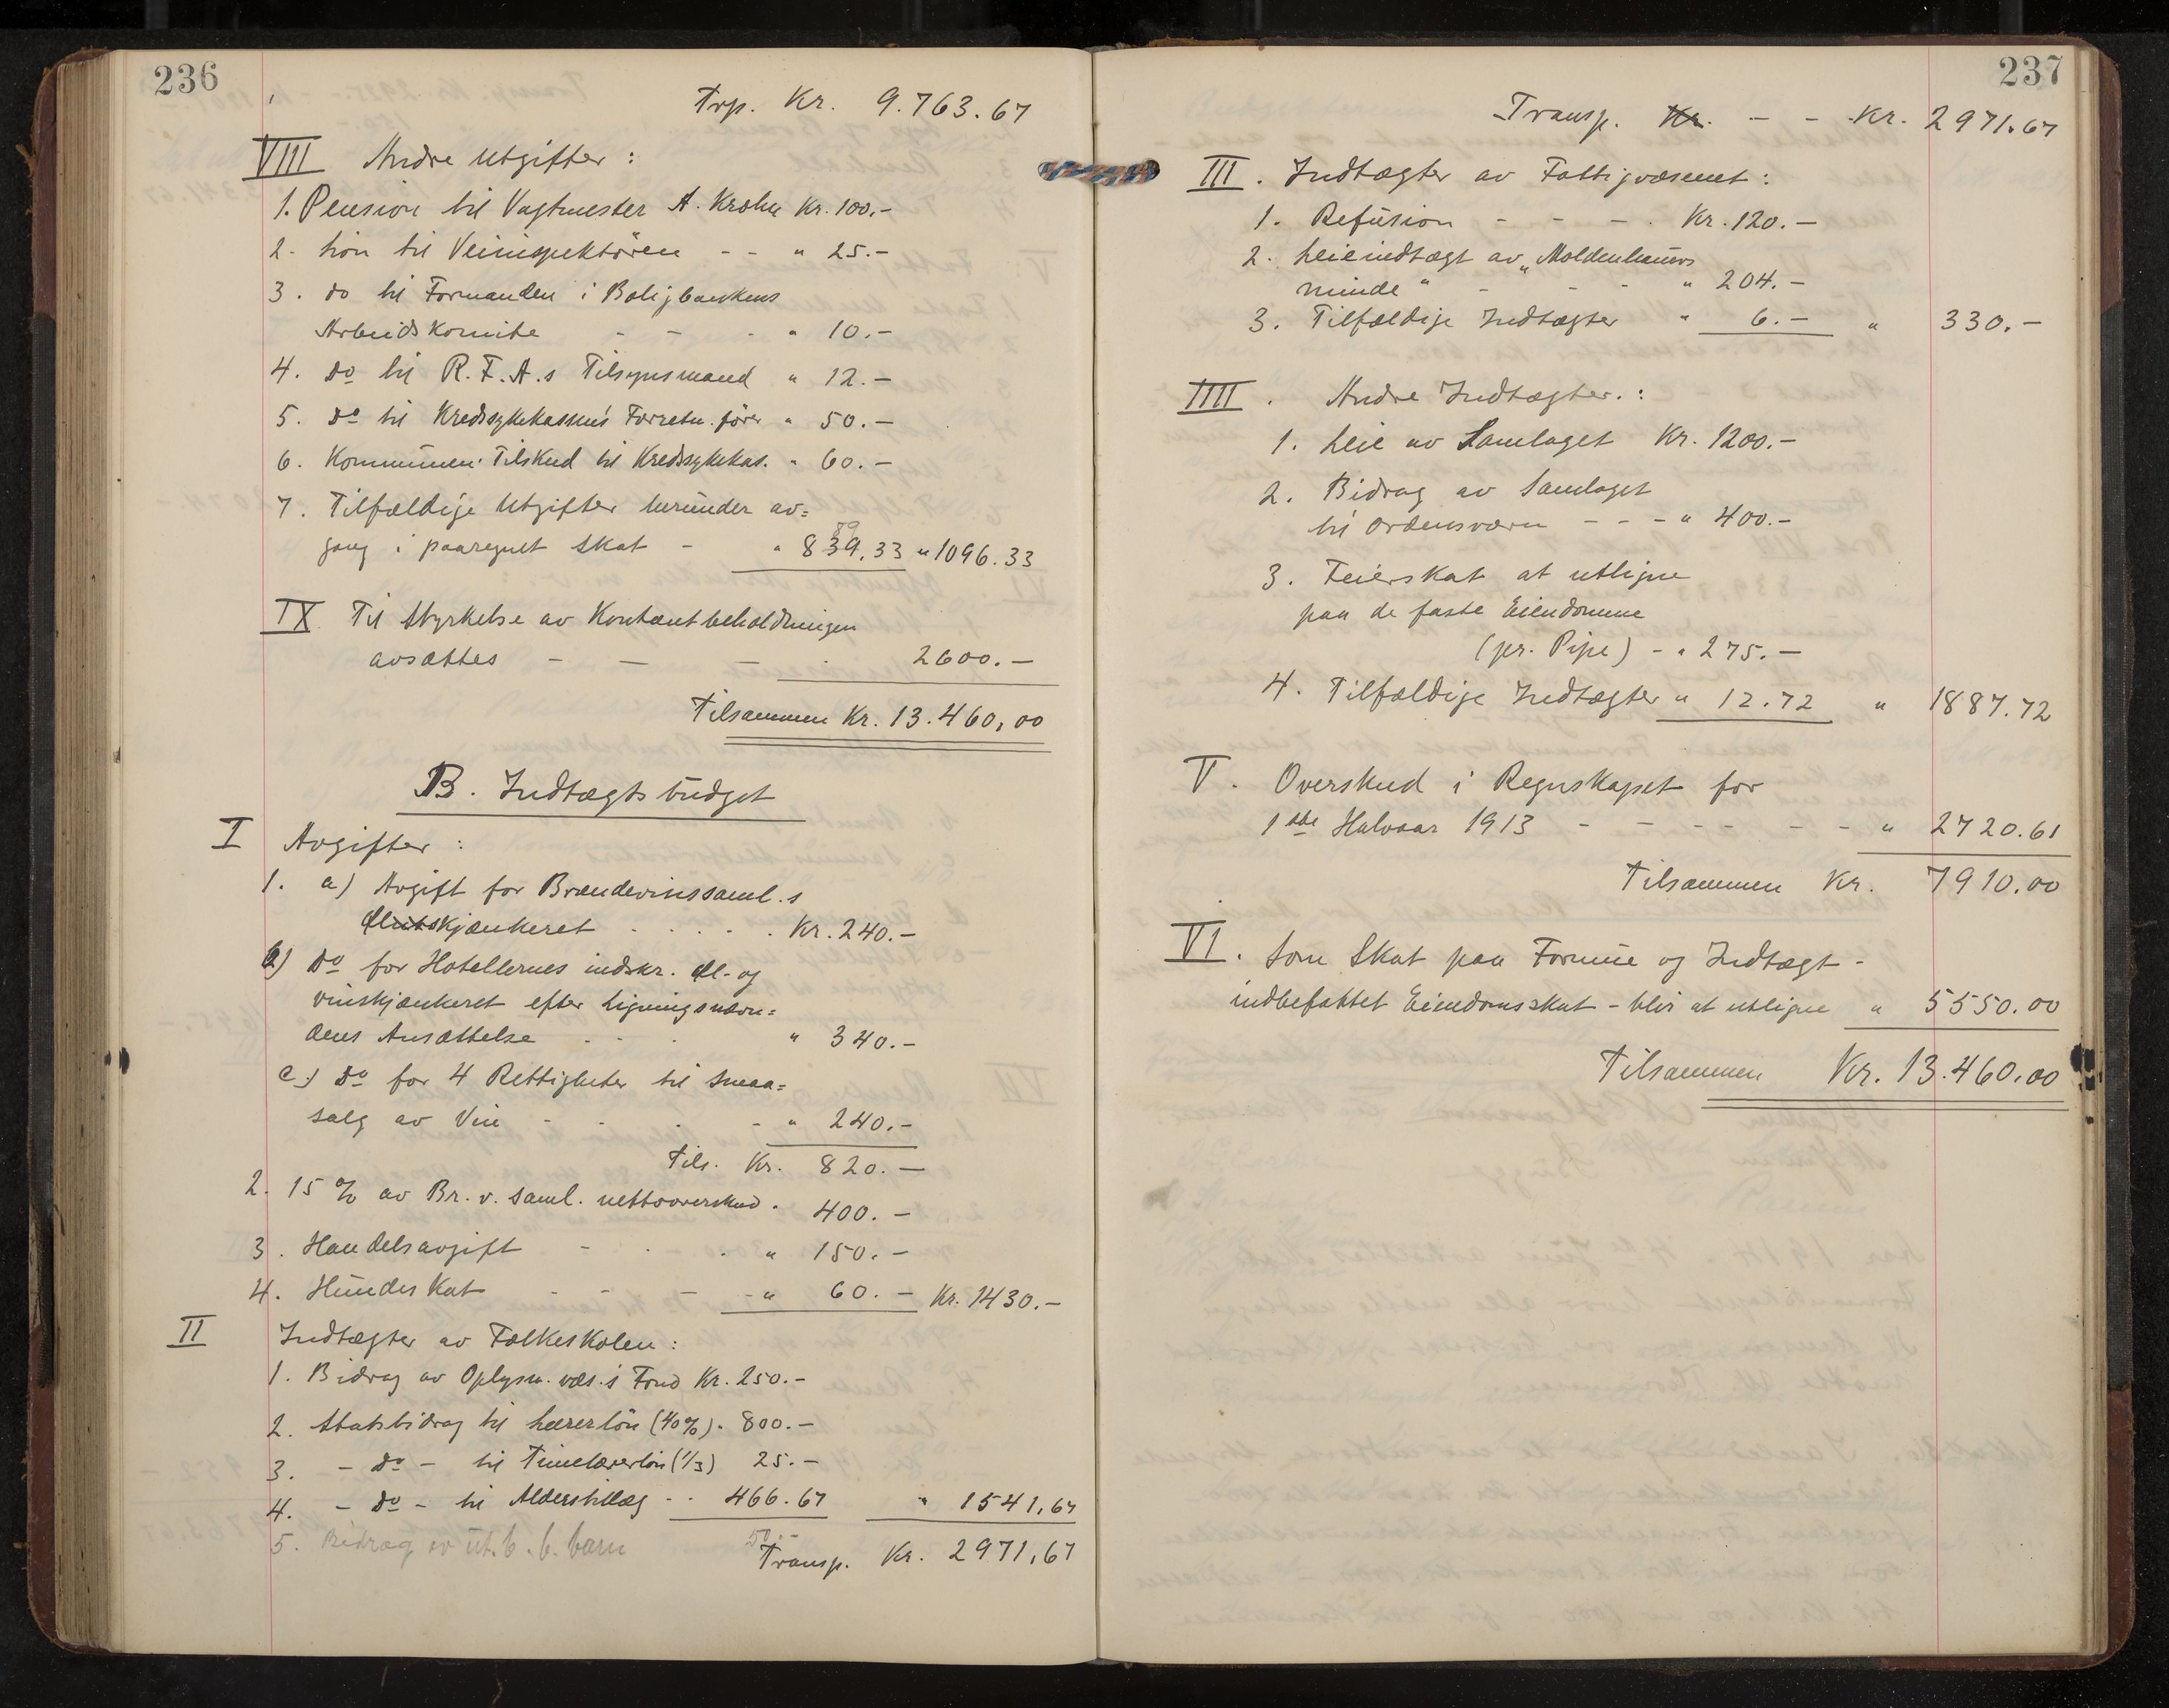 236
Trp. Kr. 9.763.67
VIII Andre Utgifter:
1. Pension til Vagtmester A. Krohn Kr. 100.-
2. Løn til Veiinspektören - - " 25.-
3. do til Formanden i Boligbankens
Arbeidskomite - - - " 10.-
4. do til R.F.A.s Tilsynsmand " 12.-
5. do til Kredssykekassens Forretn.förer " 50.-
6. Kommunen. Tilskud til Kredssykekas. " 60.-
7. Tilfældige Utgifter herunder av=
79
gang i paaregnet Skat - " 839,33 " 1096.33
IX Til Styrkelse av Kontantbeholdningen
avsættes - - - . 2600.-
Tilsammen Kr. 13.460,00
B. Indtægtsbudget
I Avgifter:
1. a) Avgift for Brændevinssaml.s
skjænkeret . . . . . Kr. 240.-
b) do for Hotellernes indskr. Öl- og
vinskjænkeret efter Ligningsnævn=
dens Ansættelse . . . " 340.-
c) do for 4 Rettigheter til Smaa=
salg av Vin - - . - " 240.-
Tils. Kr. 820.-
2. 15% av Br.v.saml. nettooverskud " 400.-
3. Handelsavgift - . . " 150.-
4. Hundeskat - - - - " 60.- Kr. 1430.-
II Indtægter av Folkeskolen:
1. Bidrag av Oplysn.væs.s Fond Kr. 250.-
2. Statsbidrag til Lærerløn (40%) " 800.-
3. - do - til Timelærerløn (1/3) 25.-
4. - do - til Alderstillæg - - 466.67 " 1541,67
5. Bidrag av ut.b.b. barn 50.-
Transp. Kr. 2971,67
237
Transp. Kr. - - Kr. 2971.67
III. Indtægter av Fattigvæsenet:
1. Refusion - - - . Kr. 120.-
2. Leieindtægt av "Moldenhauers
minde" - - - " 204.-
3. Tilfældige Indtægter " 6.- " 330.-
IIII. Andre Indtægter.:
1. Leie av Samlaget Kr. 1200.-
2. Bidrag av Samlaget
til Ordensværn - - - " 400.-
3. Feierskat at utligne
paa de faste Eiendomme
(pr. Pipe) - " 275.-
4. Tilfældige Indtægter " 12.72 " 1887.72
V. Overskud i Regnskapet for
1ste Halvaar 1913 - - - - - - " 2720.61
Tilsammen Kr. 7910.00
VI. Som Skat paa Formue og Indtægt -
indbefattet Eiendomsskat - blir at utligne " 5550.00
Tilsammen Kr. 13.460.00